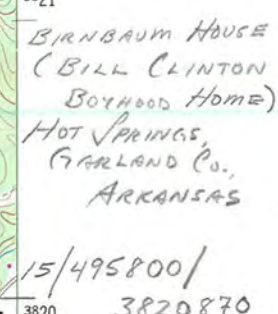 BIRNBAUM HOUSE
(BILL CLINTON
BOYHOOD HOME)
HOT SPRINGS,
GARLAND CO.,
ARKANSAS
15/495800/
3820 3820870